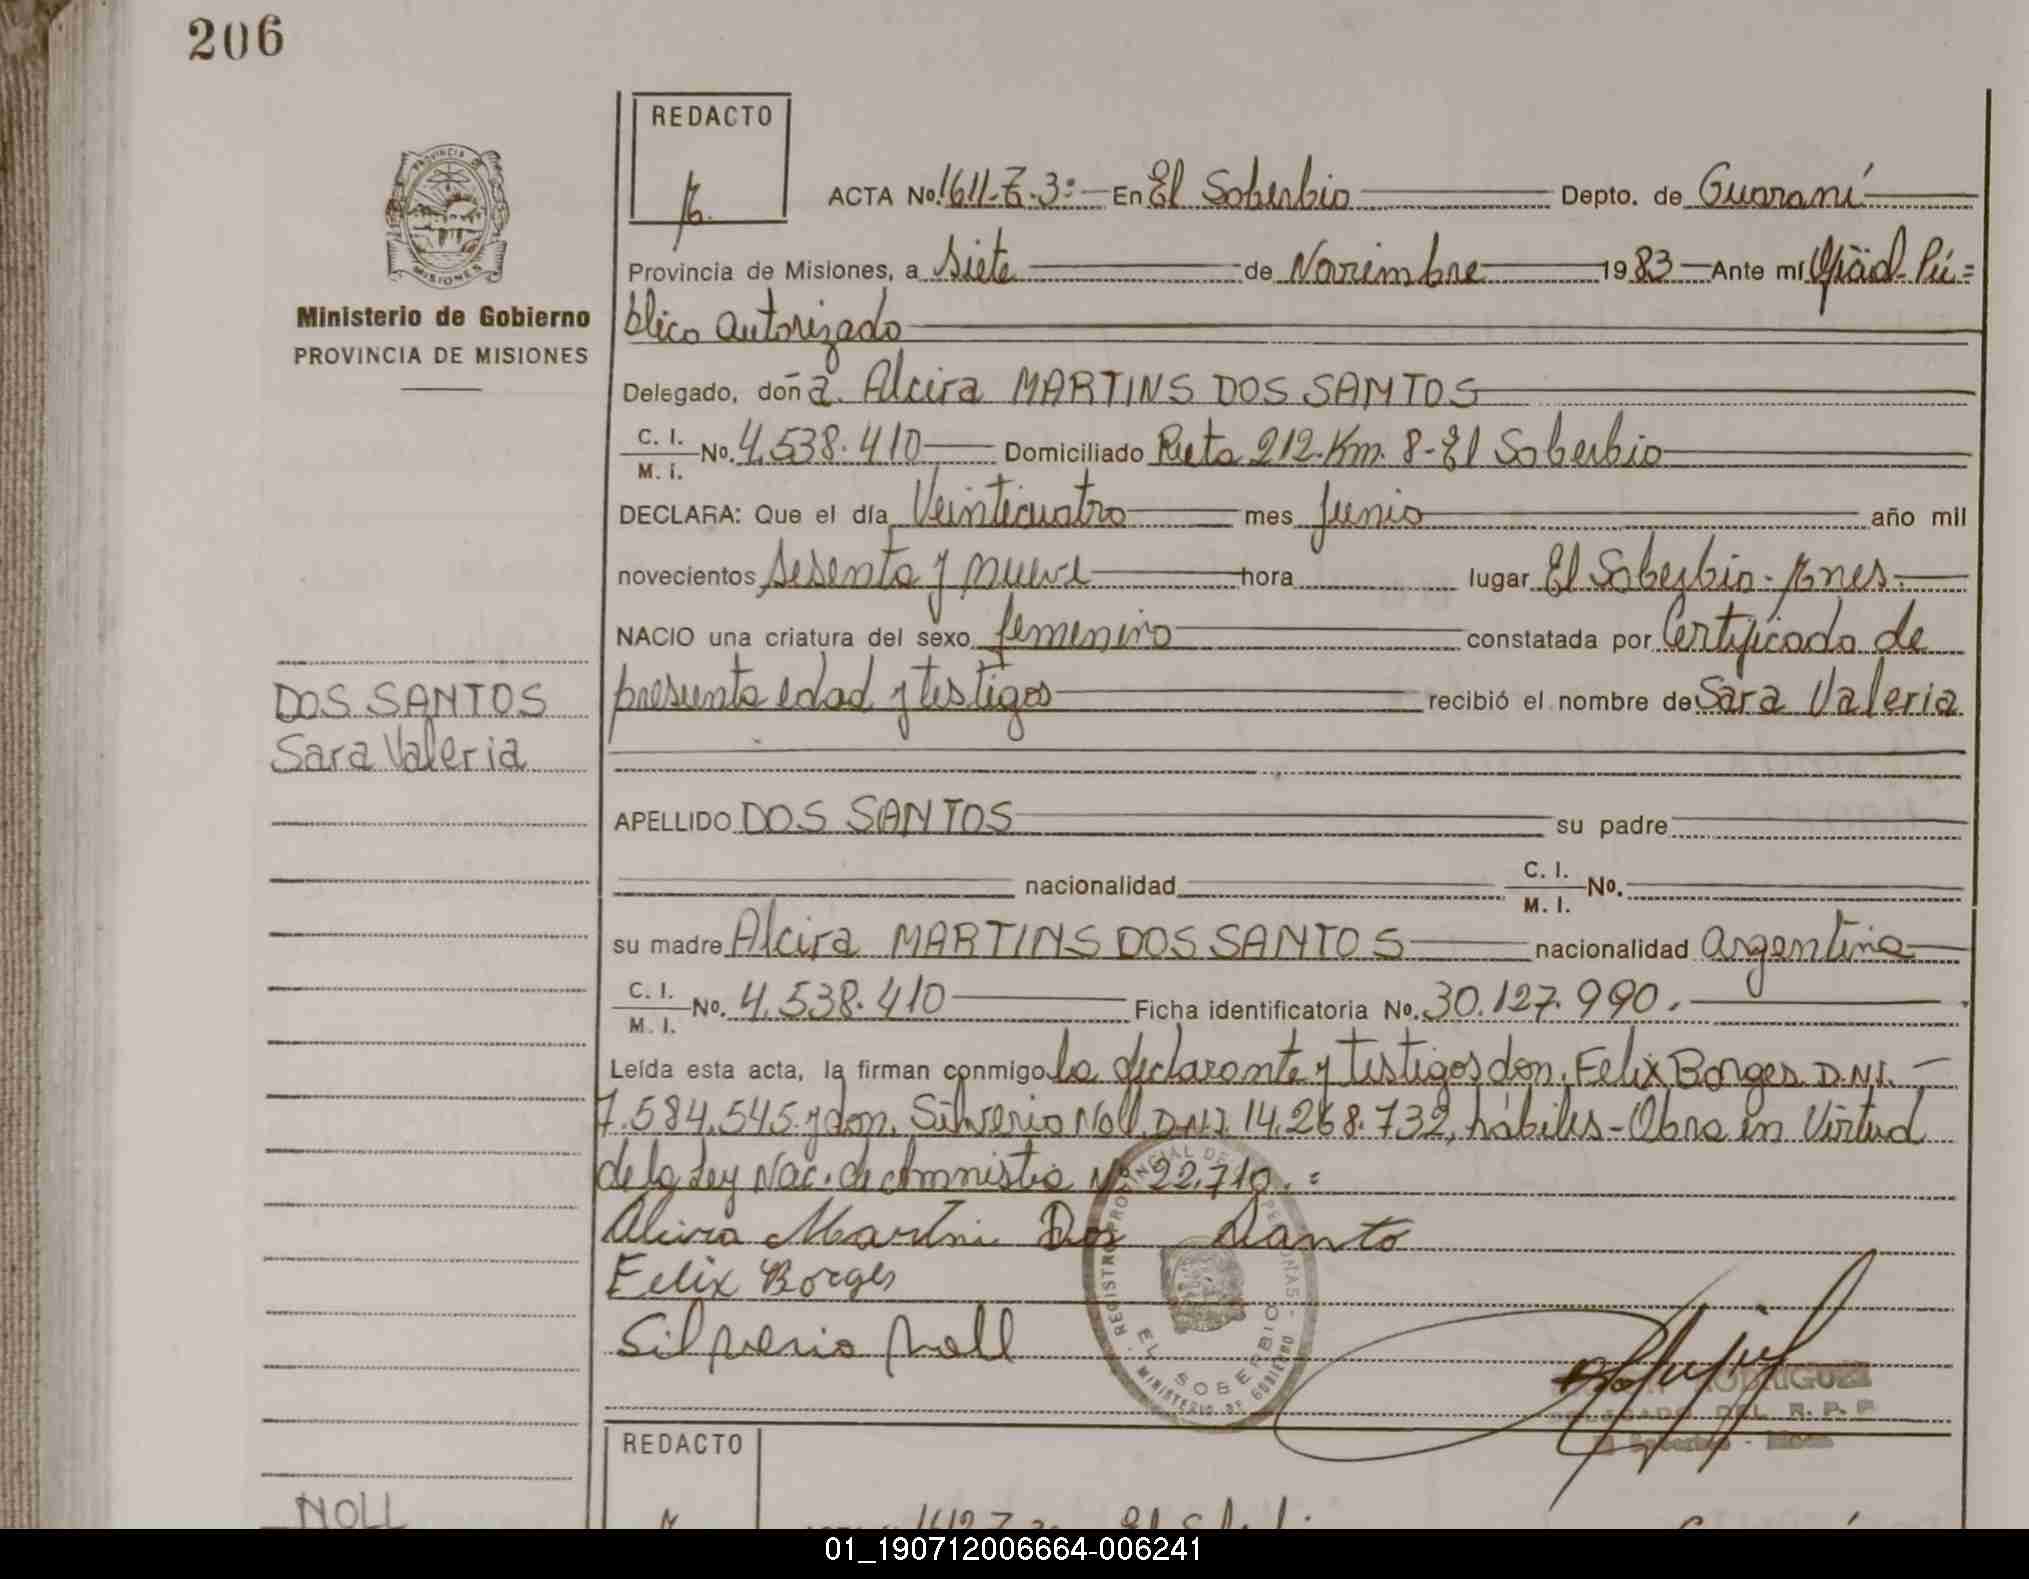 206
REDACTO
PROVINCIA DE
MISIONES
Ministerio de Gobierno
PROVINCIA DE MISIONES
ACTA No. 1611-Z-3:- En El Soberbio Depto. de Guaraní
Provincia de Misiones, a siete de Noviembre 1983 Ante mí Pú=
blico autorizado
Delegado, doña. Alcira MARTINS DOS SANTOS
C. I. M. I. No. 4.538.410 Domiciliado Ruta 212-Km. 8-El Soberbio
DECLARA: Que el día Veinticuatro mes Junio año mil
novecientos sesenta y nueve hora lugar El Soberbio-Mnes.
NACIO una criatura del sexo femenino constatada por Certificado de
presunta edad y testigos recibió el nombre de Sara Valeria
DOS SANTOS
Sara Valeria
APELLIDO DOS SANTOS su padre
nacionalidad C. I. M. I. No.
su madre Alcira MARTINS DOS SANTOS nacionalidad Argentina
C. I. M. I. No. 4.538.410 Ficha identificatoria No. 30.127.990.
Leída esta acta, la firman conmigo la declarante y testigos don. Felix Borges D.N.I.-
7.584.545 y don. Silverio Noll D.N.I. 14.268.732, hábiles-Obra en Virtud
de la Ley Nac. de Amnistia Nº 22.710.=
Alcira Martin Dos Santo
Felix Borges
Silverio Noll
REGISTRO PROVINCIAL DE PERSONAS
EL SOBERBIO
MINISTERIO DE GOBIERNO
RODRIGUEZ
DELEGADO DEL R. P. P.
El Soberbio - Mnes
REDACTO
NOLL
01_190712006664-006241